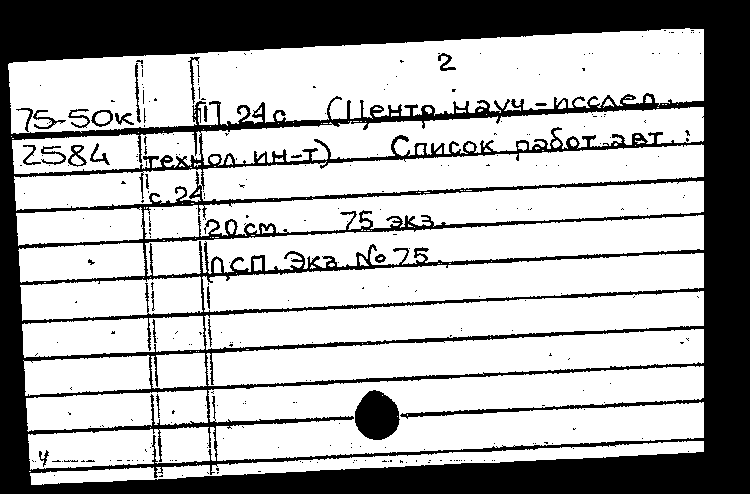 2
75-50к П, 24 с. (Центр. науч.-исслед.
2584 технол. ин-т). Список работ авт.:
с. 24.
20 см. 75 экз.
ДСП. Экз. № 75.
4